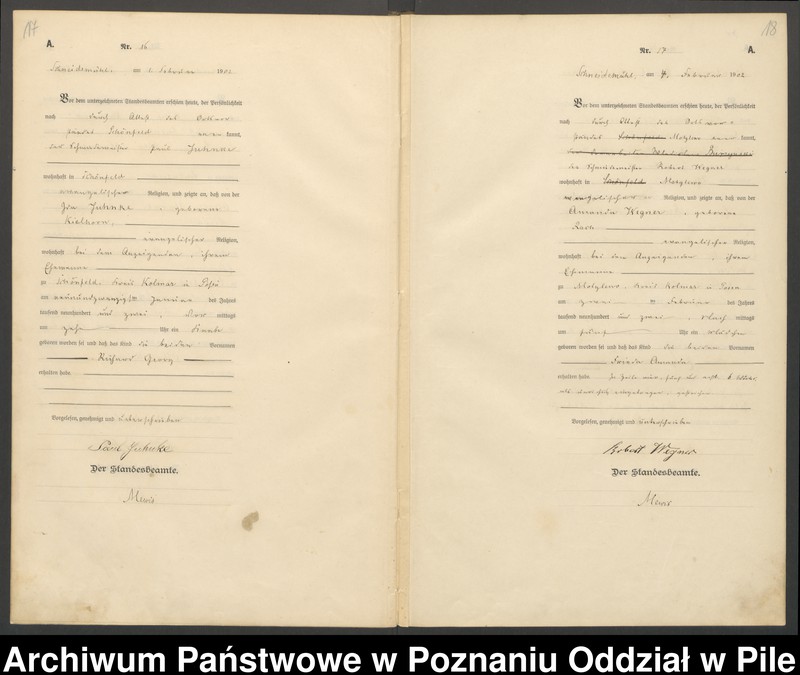 17
A.
Nr. 16
Schneidemühl, am 1. Februar 1902
Vor dem unterzeichneten Standesbeamten erschien heute, der Persönlichkeit
nach durch Attest des
Schönfeld kannt,
der Schmiedemeister Paul Juhnke
wohnhaft in Schönfeld
evangelischer Religion, und zeigte an, daß von der
Juhnke, geborene
evangelischer Religion,
wohnhaft bei dem Anzeigenden, ihrem
Ehemanne
zu Schönfeld, Kreis Kolmar in Posen
am neunundzwanzigsten Januar des Jahres
tausend neunhundert und zwei, Vor mittags
um zehn Uhr ein Knabe
geboren worden sei und daß das Kind die beiden Vornamen
Richard Georg
erhalten habe.
Vorgelesen, genehmigt und unterschrieben
Paul Juhnke
Der Standesbeamte.
Mewis
18
Nr. 17
A.
Schneidemühl, am 4. Februar 1902
Vor dem unterzeichneten Standesbeamten erschien heute, der Persönlichkeit
nach durch Attest des
kannt,
der Schmiedemeister Robert Wegner
wohnhaft in Schönfeld
evangelischer Religion, und zeigte an, daß von der
Amanda Wegner, geborene
evangelischer Religion,
wohnhaft bei dem Anzeigenden, ihrem
Ehemanne
zu Kreis Kolmar in Posen
am zwei ten Februar des Jahres
tausend neunhundert und zwei, Nach mittags
um Uhr ein Mädchen
geboren worden sei und daß das Kind die beiden Vornamen
Frieda Amanda
erhalten habe.
Vorgelesen, genehmigt und unterschrieben
Robert Wegner
Der Standesbeamte.
Mewis
Archiwum Państwowe w Poznaniu Oddział w Pile